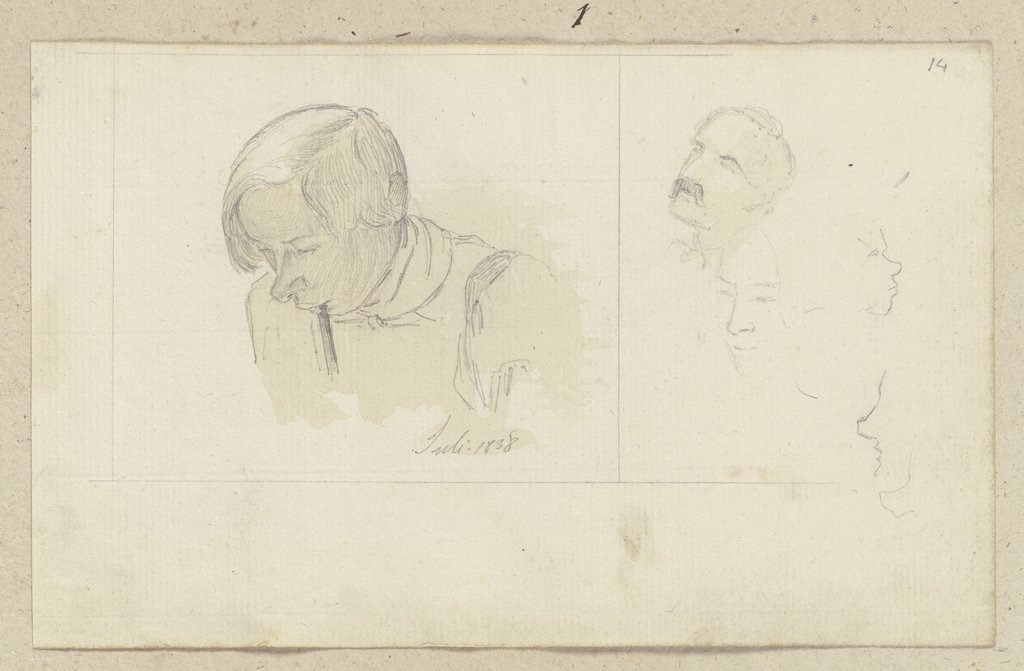 1
14
Juli. 1838